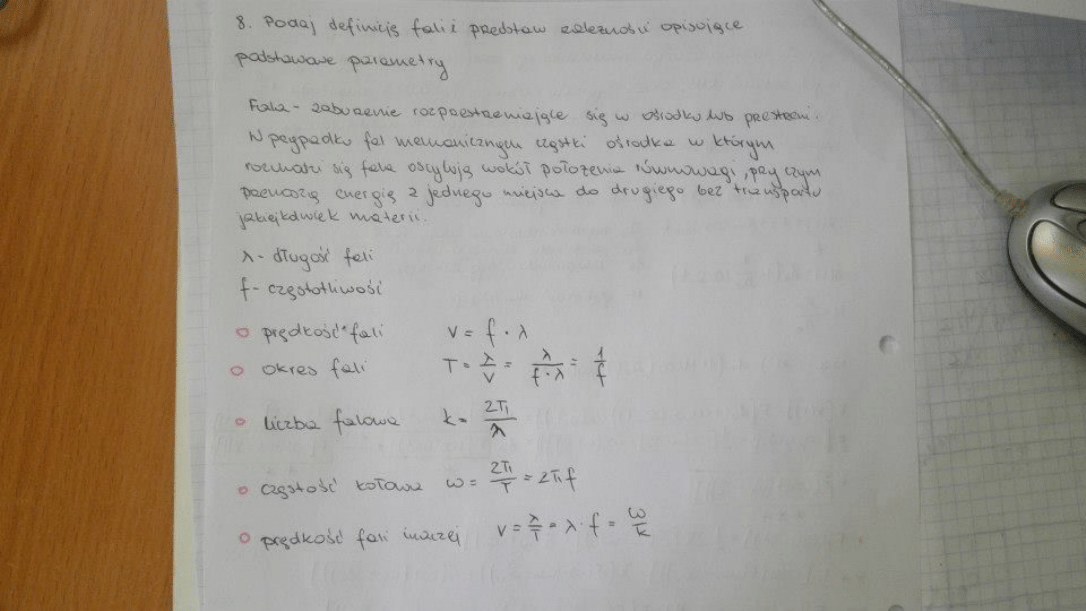 8. Podaj definicję fali i predstaw zależności opisujące
podstawowe parametry
Fala - zaburzenie rozprzestrzeniające się w ośrodku lub przestrzeni.
W przypadku fal mechanicznych cząstki ośrodka w którym
rozchodzi się fala oscylują wokół położenia równowagi, przy czym
przenoszą energię z jednego miejsca do drugiego bez transportu
jakiejkolwiek materii.
λ - długość fali
f - częstotliwość
prędkość fali v = f · λ
okres fali T = λ/v = λ/(f · λ) = 1/f
liczba falowa k = 2π/λ
częstość kołowa ω = 2π/T = 2πf
prędkość fali inaczej v = λ/T = λ · f = ω/k